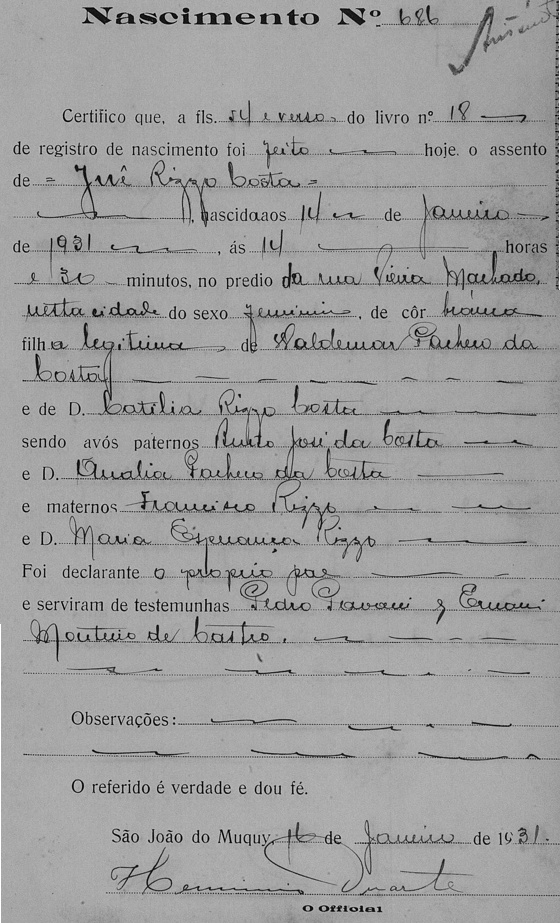 Nascimento Nº 686
Certifico que, a fls. 54 e verso do livro nº 18
de registro de nascimento foi feito hoje. o assento
de = Rizzo Costa =
, nascida aos 14 de Janeiro
de 1931, ás 14 horas
e 30 minutos, no predio da rua Vieira Machado,
nesta cidade do sexo feminino, de côr branca
filha legitima de Waldemar Pacheco da
Costa
e de D. Catilia Rizzo Costa
sendo avós paternos José da Costa
e D. Analia Pacheco da Costa
e maternos Francisco Rizzo
e D. Maria Esperança Rizzo
Foi declarante o proprio pae
e serviram de testemunhas Pedro & Ernani
Monteiro de Castro.
Observações:
O referido é verdade e dou fé.
São João do Muquy, 16 de Janeiro de 1931.
Herminio Duarte
O Official